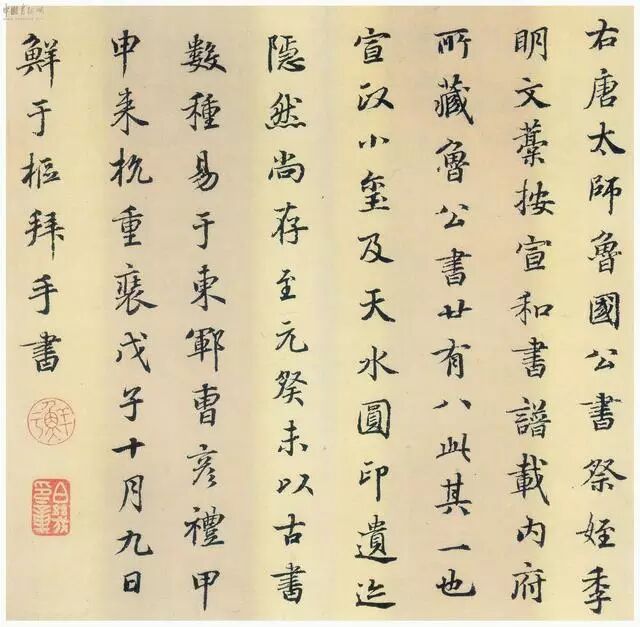 右唐太師魯國公書祭姪季
明文藁按宣和書譜載內府
所藏魯公書廿有八此其一也
宣政小璽及天水圓印遺迹
隱然尚存至元癸未以古書
數種易于東鄆曹彦禮甲
申来杭重裝戊子十月九日
鮮于樞拜手書